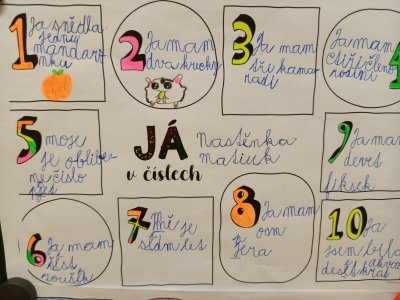 1 Ja snědla
jednu
mandari
nku
2 Ja mam
dva křečky
3 Ja mam
tři kama
radi
Ja mam 4
čtiři členo
rodini
5 moje
je oblibe
ne číslo
pjet
JÁ
v číslech
Nastěnka
matiuk
9 Ja ma
devjt
fiksek
6 Ja mam
šest
roušik
7 Mě je
sedm let
8 Ja mam
osm
her
10 Ja
jsem byla
deset krat